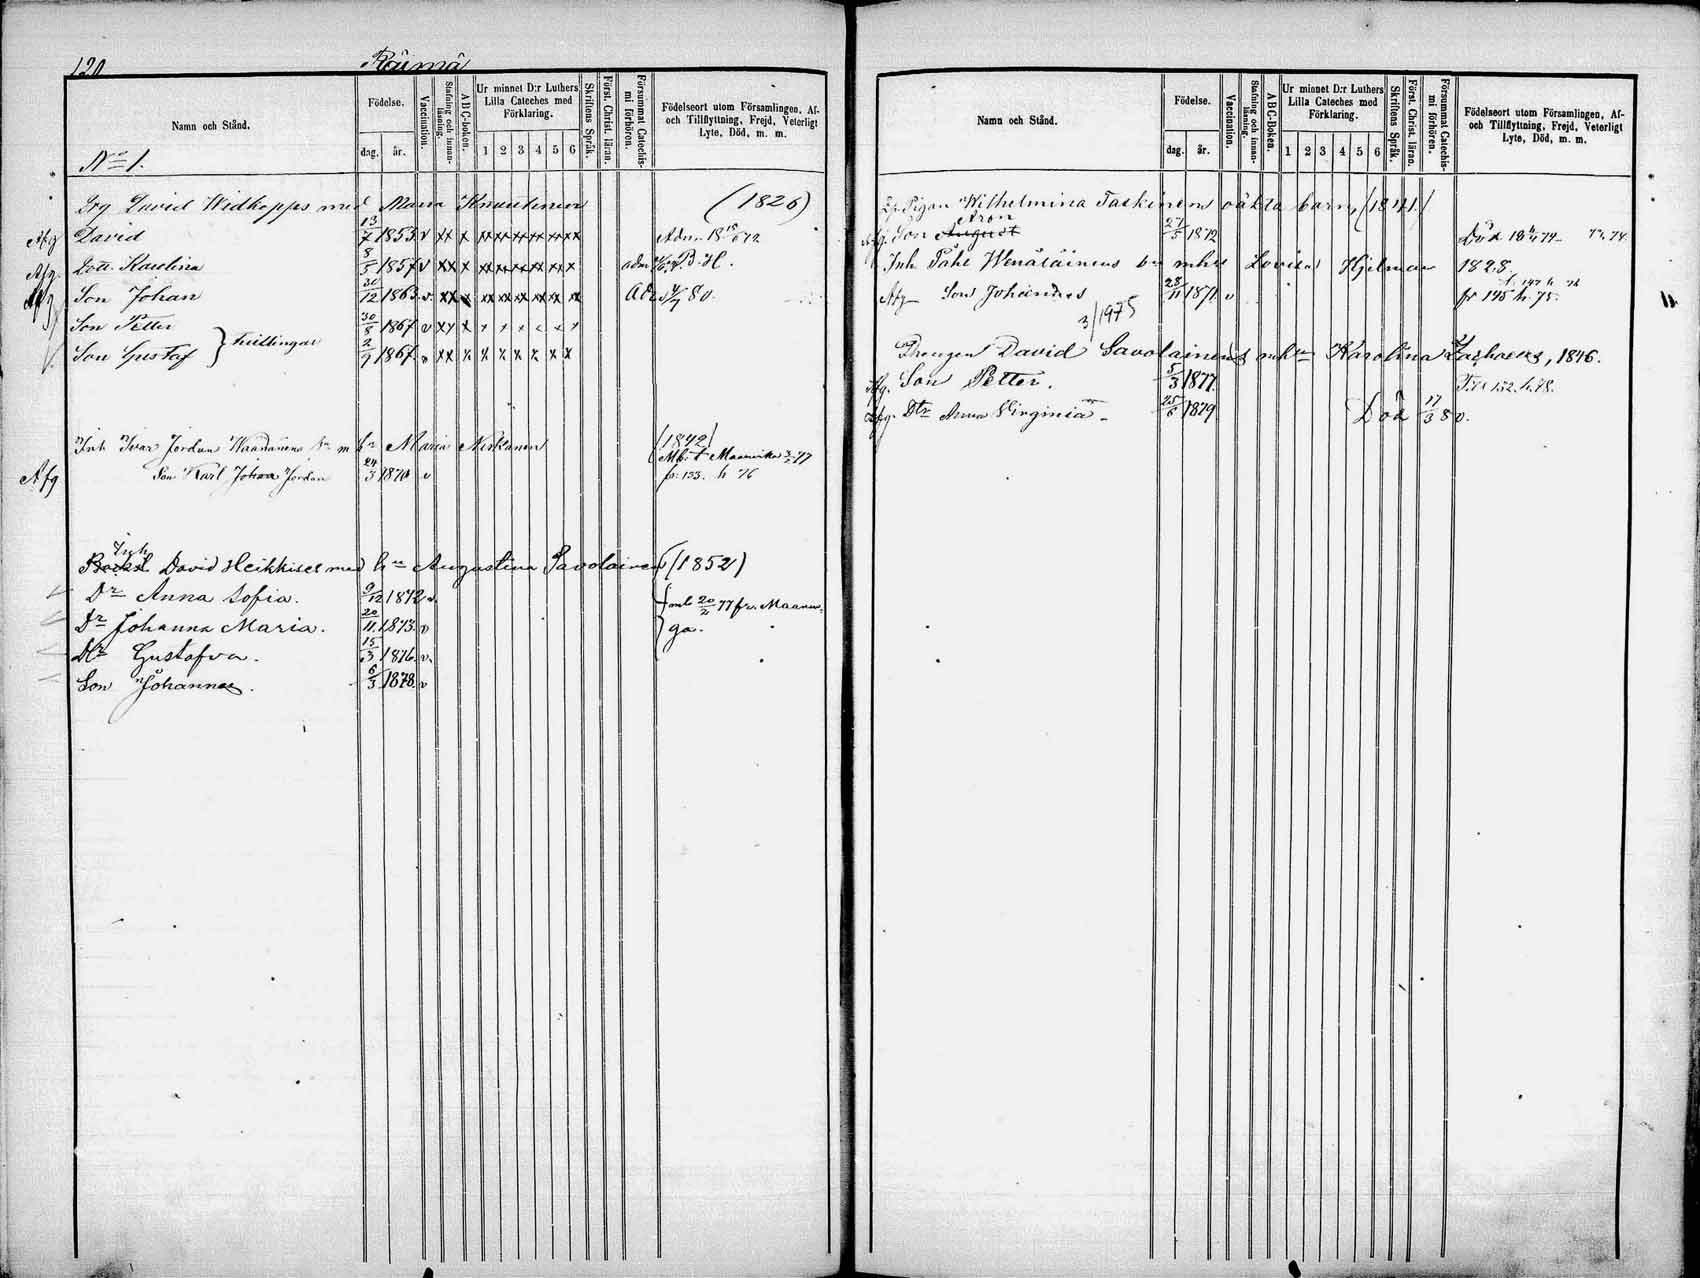 120 Räimä
Namn och Stånd.
Födelse.
dag. år.
Vaccination.
Stafning och innanläsning.
A B C-boken.
Ur minnet D:r Luthers Lilla Cateches med Förklaring.
1 2 3 4 5 6
Skriftens Språk.
Först. Christ. läran.
Försummat Catechismi förhören.
Födelseort utom Församlingen, Af- och Tillflyttning, Frejd, Veterligt Lyte, Död, m. m.
No 1.
Drg David Widkopps med Maria Knuutinen (1826)
Afg David 13/7 1853 v
Afg. Dottr Karolina 8/5 1857 v
Son Johan 30/12 1863 v. Adm 80.
Son Petter 30/8 1867 v
Son Gustaf } tvillingar 2/9 1867 v
Inh Ivar Jordan m hu Maria Niskanen (1842)
Afg Son Karl Johan Jordan 24/3 1870 v fr. 133. h 76
Inh David Heikkises med hu Augustina Savolainen (1852)
Dr Anna Sofia. 9/12 1872 v. } 20/2 77 fr. Maanin-
Dr Johanna Maria. 20/11 1873 v ga.
Dtr Gustafva. 15/3 1876 v.
Son Johannes. 6/3 1878 v
Namn och Stånd.
Födelse.
dag. år.
Vaccination.
Stafning och innanläsning.
A B C-boken.
Ur minnet D:r Luthers Lilla Cateches med Förklaring.
1 2 3 4 5 6
Skriftens Språk.
Först. Christ. läran.
Försummat Catechismi förhören.
Födelseort utom Församlingen, Af- och Tillflyttning, Frejd, Veterligt Lyte, Död, m. m.
Pigan Wilhelmina Taskinens oäkta barn, (1841)
Aron
Afg. Son August 27/5 1872 Död
Inh Påhl Wenäläinens mhu Lovisa Hjelman 1828
Afg Son Johannes 28/11 1871 v fr 145 h. 75.
3/1975
Drengen David Savolainens mhu Karolina 1846.
Afg. Son Petter. 5/3 1877 Till 152. h. 78.
Afg. Dtr Anna Virginia 25/6 1879 Död 17/3 80.